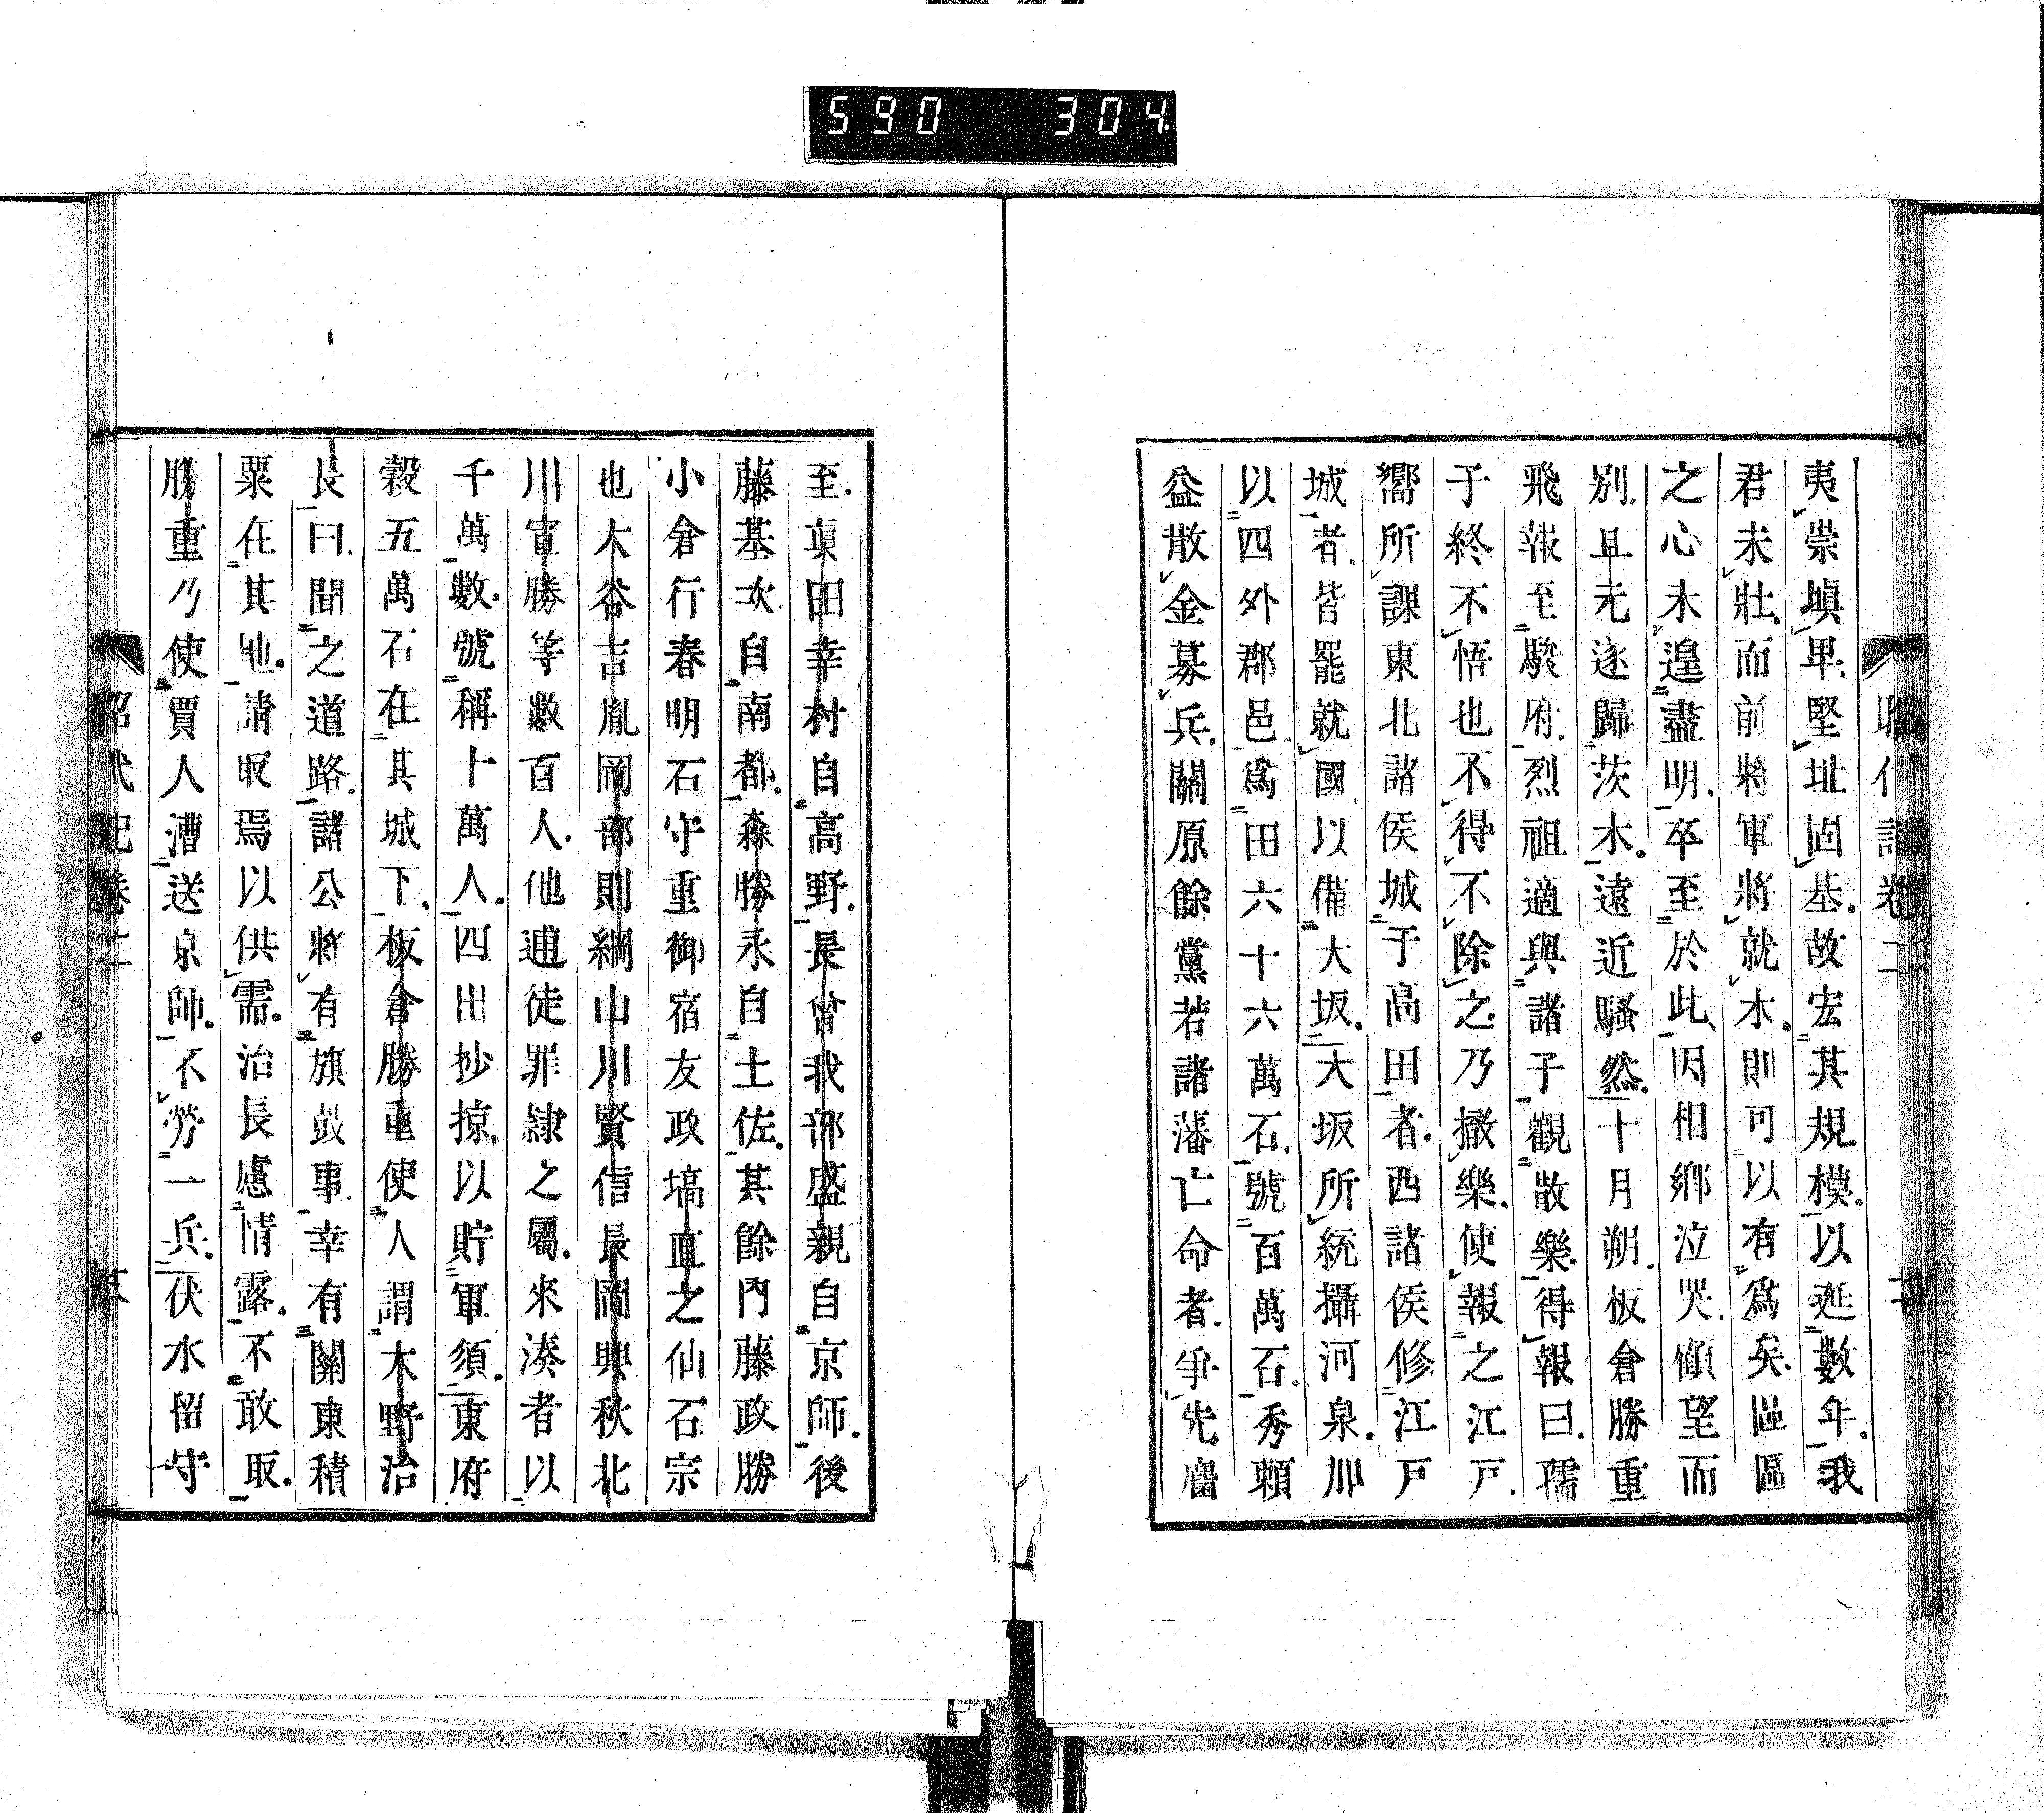 590 304
昭代記卷二
夷崇塡卑堅址固基故宏其規模以延數年我
君未壯而前將軍將就木則可以有爲矣區區
之心未遑盡明卒至於此因相鄕泣哭顧望而
別且元遂歸茨木遠近騷然十月朔板倉勝重
飛報至駿府烈祖適與諸子觀散樂得報曰孺
子終不悟也不得不除之乃撤樂使報之江戸
嚮所課東北諸侯城于高田者西諸侯修江戸
城者皆罷就國以備大坂大坂所統攝河泉川
以四外郡邑爲田六十六萬石號百萬石秀賴
益散金募兵關原餘黨若諸藩亡命者爭先麕
至眞田幸村自高野長曾我部盛親自京師後
藤基次自南都森勝永自土佐其餘內藤政勝
小倉行春明石守重御宿友政塙直之仙石宗
也大谷吉胤岡部則綱山川賢信長岡興秋北
川宣勝等數百人他逋徒罪隸之屬來湊者以
千萬數號稱十萬人四出抄掠以貯軍須東府
穀五萬石在其城下板倉勝重使人謂大野治
長曰聞之道路諸公將有旗鼓事幸有關東積
粟在其地請取焉以供需治長慮情露不敢取
勝重乃使賈人漕送京師不勞一兵伏水留守
昭代記卷二